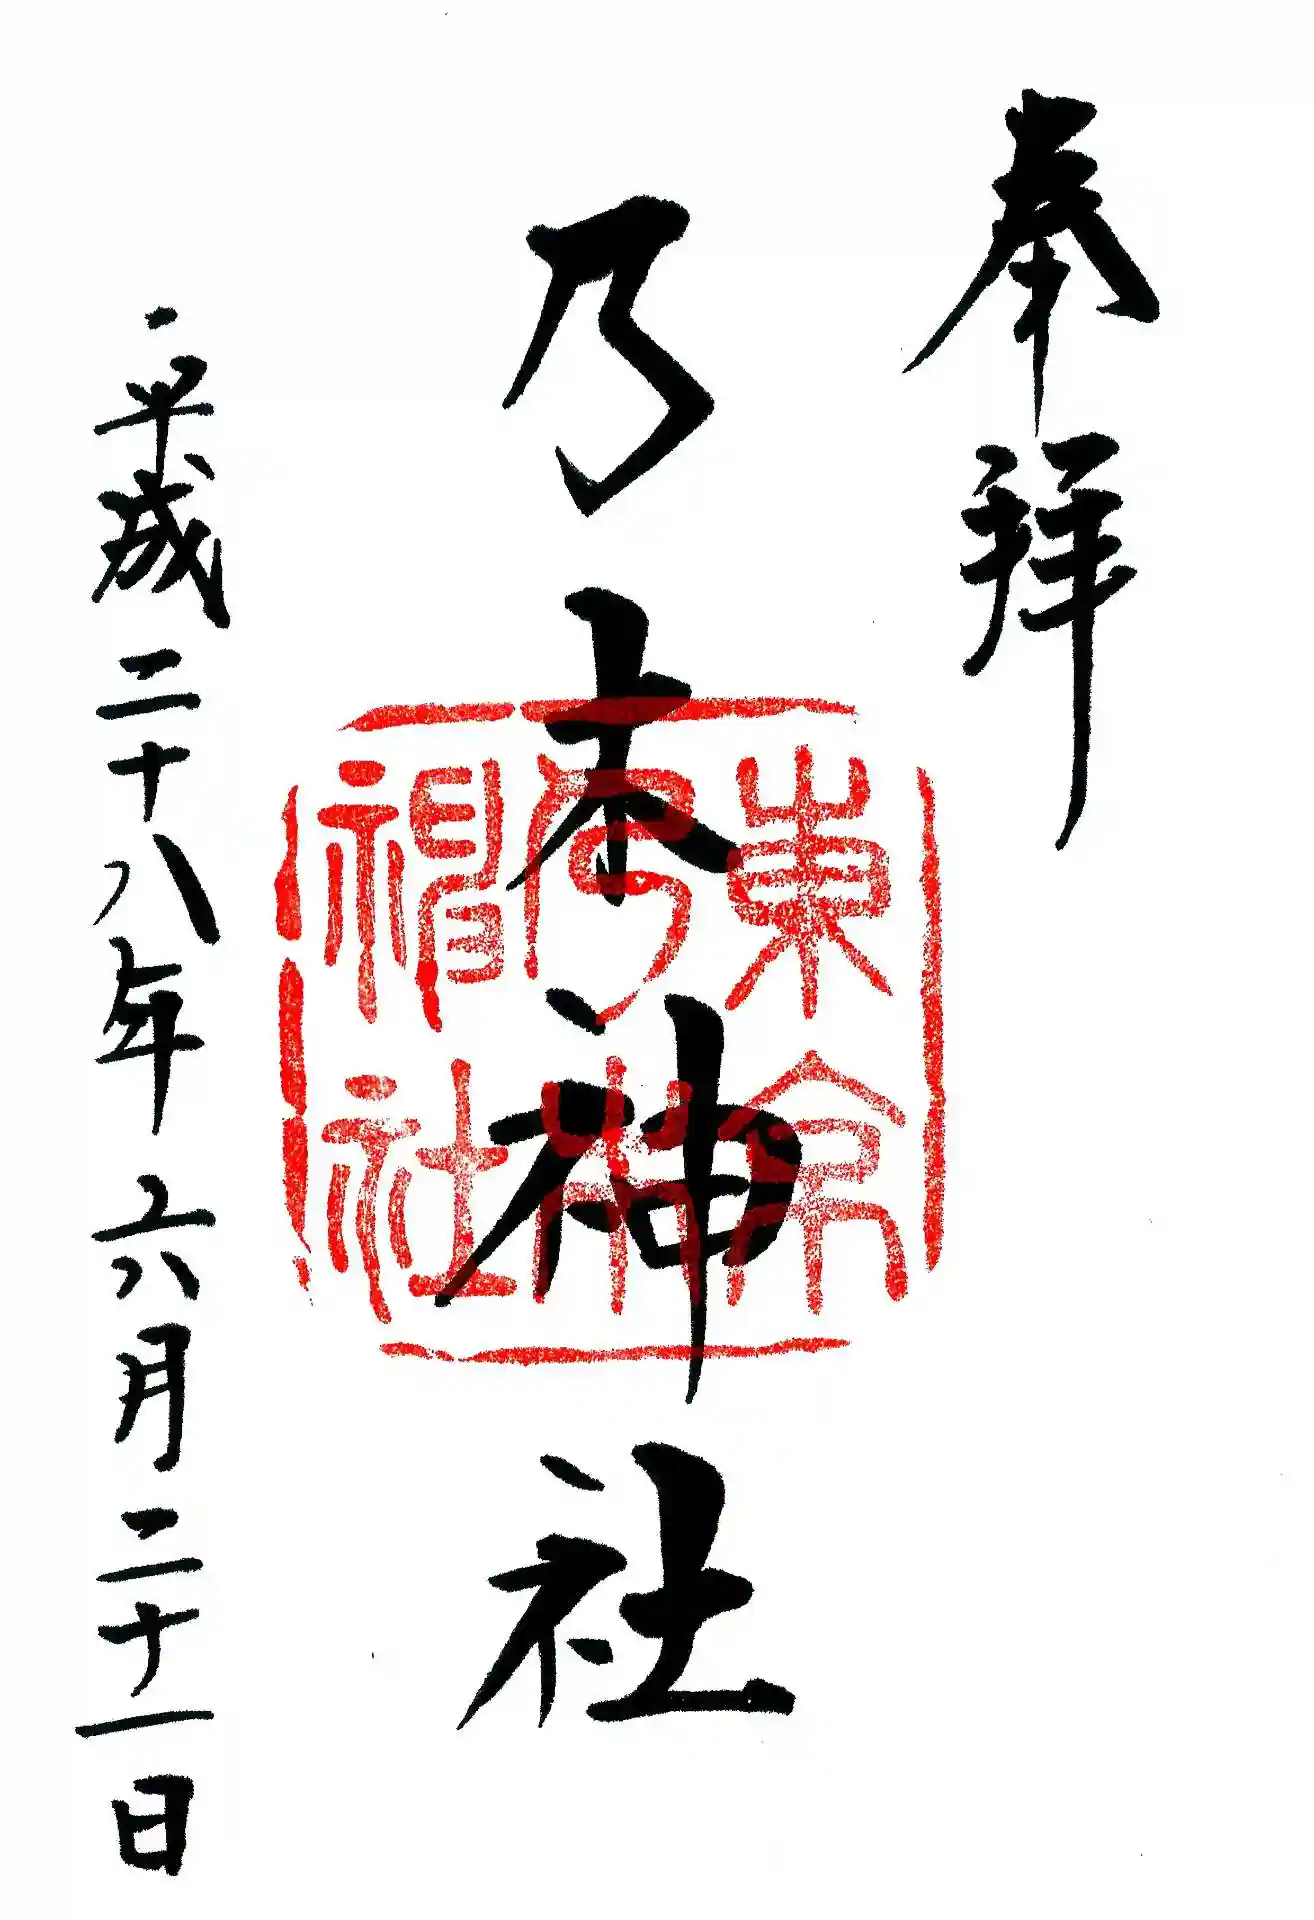 奉拝
乃木神社
東京
乃木
神社
平成二十八年六月二十一日